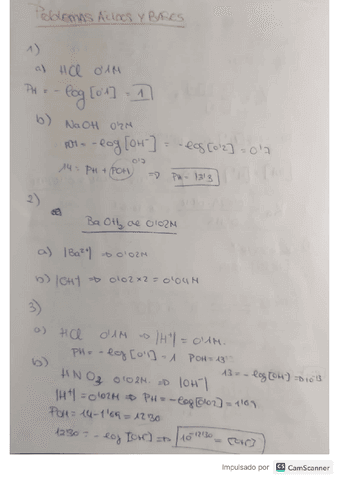 PROBLEMAS ÁCIDOS Y BASES
1)
a) HCl 0'1M
PH = - log [0'1] = 1
b) NaOH 0'2M
POH = - log [OH⁻] = -log [0'2] = 0'7
0'7
14 = PH + POH => PH = 13'3
2)
Ba OH₂ de 0'02M
a) |Ba²⁺| => 0'02M
b) |OH⁻| => 0'02 × 2 = 0'04M
3)
a) HCl 0'1M => |H⁺| = 0'1M.
PH = - log [0'1] = 1 POH = 13
13 = - log [OH⁻]
b) HNO₃ 0'02M => |OH⁻|
|H⁺| = 0'02M => PH = -log[0'02] = 1'69
POH = 14 - 1'69 = 12'30
12'30 = - log [OH⁻] => 10⁻¹²'³⁰ = [OH⁻]
Impulsado por CS CamScanner